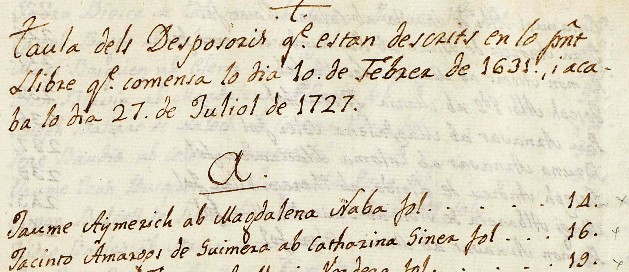 Taula dels Desposoris q.e estan descrits en lo pñt
Llibre q.e comensa lo dia 10. de Febrer de 1631., i aca-
ba lo dia 27. de Juliol de 1727.
A.
Jaume Aÿmerich ab Magdalena Naba fol. . . . . . 14.
Jacinto Amargos de Guimera ab Catharina Giner fol . . . 16.
fol. . . . . . 19.